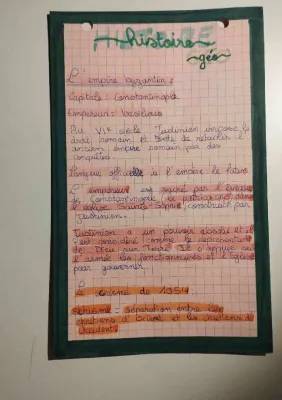 histoire
géo
L'empire byzantin :
Capitale : Constantinople
Empereur : basileus
Au VIe siècle Justinien impose le
droit romain et tente de rétablir l'
ancien empire romain par des
conquêtes.
Langue officielle à l'empire le latin
L'empereur est sacré par l'
de Constantinople (le patriarche) dans
l'église Sainte Sophie construit par
Justinien.
Justinien a un pouvoir absolu et il
est considéré comme le représentant
de Dieu sur Il s'appuie sur
l'armée les fonctionnaires et l'église
pour gouverner.
Le de 1054
Schisme = séparation entre les
chrétiens d'Orient et les chrétiens d'
occident.